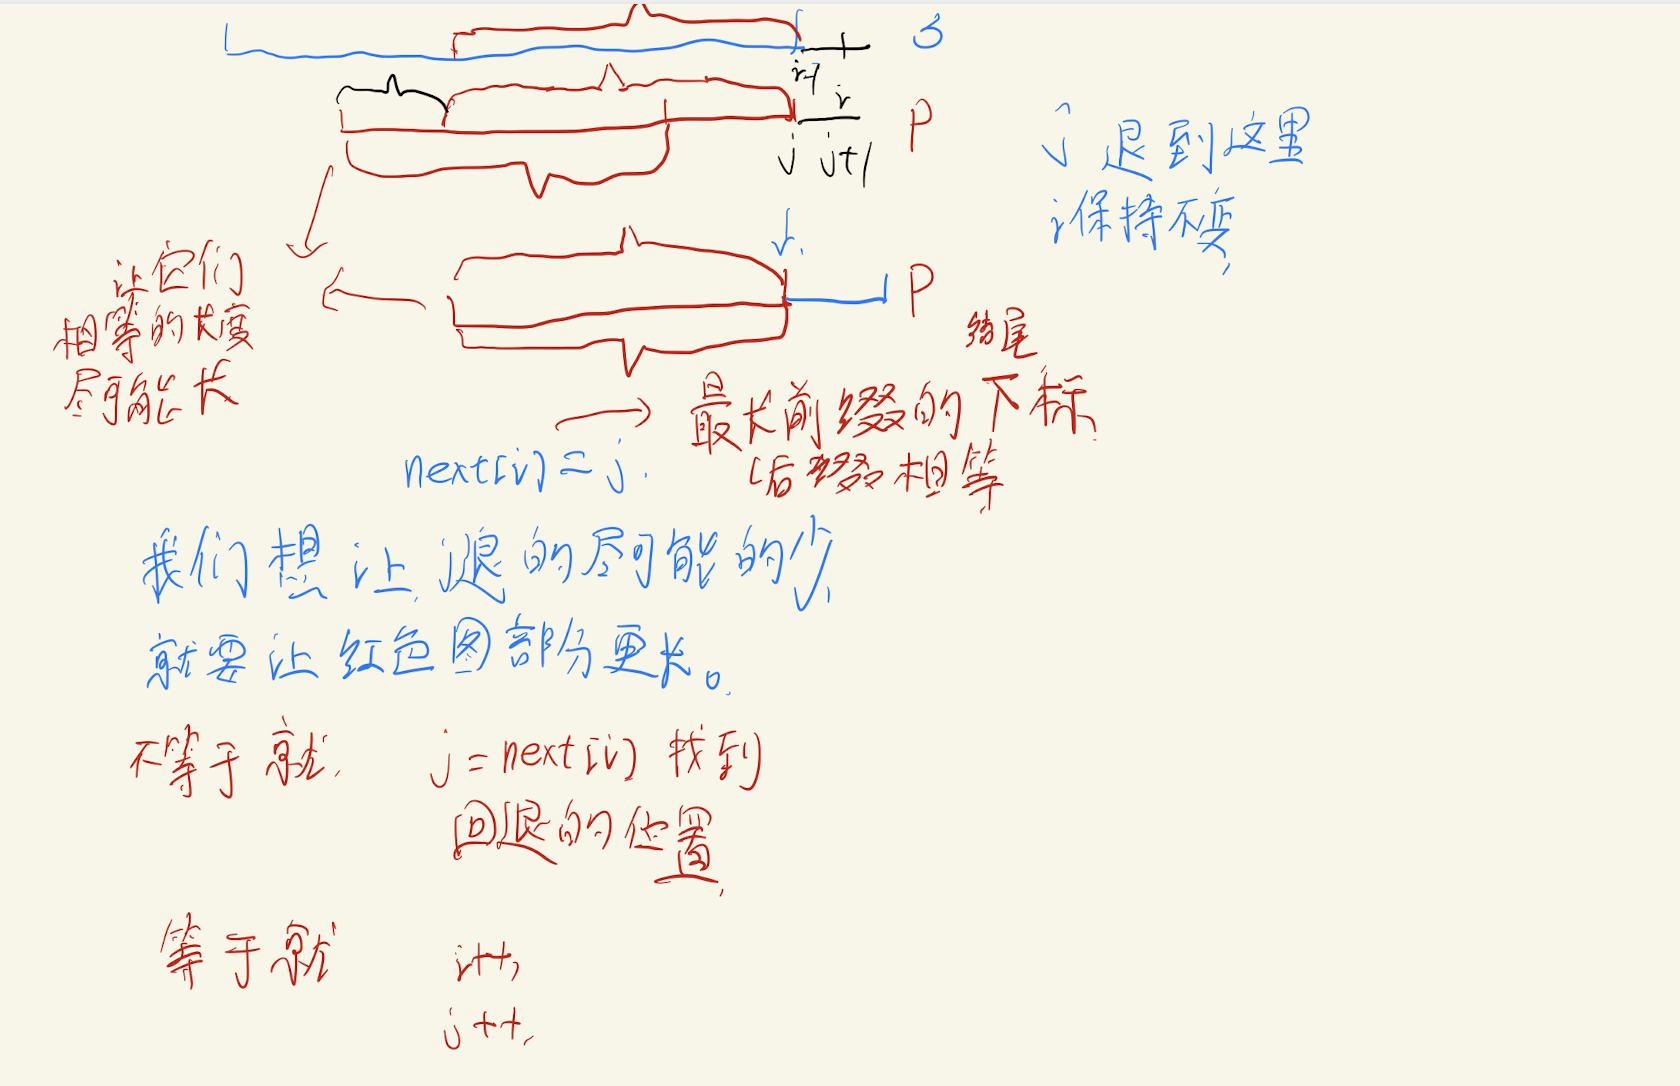 S
i-1
i
P
j j+1
j 退到这里
i保持不变,
j.
P
让它们
相等的长度
尽可能长
结尾
最长前缀的下标.
后缀相等
next[i] = j.
我们想让j退的尽可能的少,
就要让红色图部分更长。
不等于就, j = next[i] 找到
回退的位置,
等于就 i++,
j++,